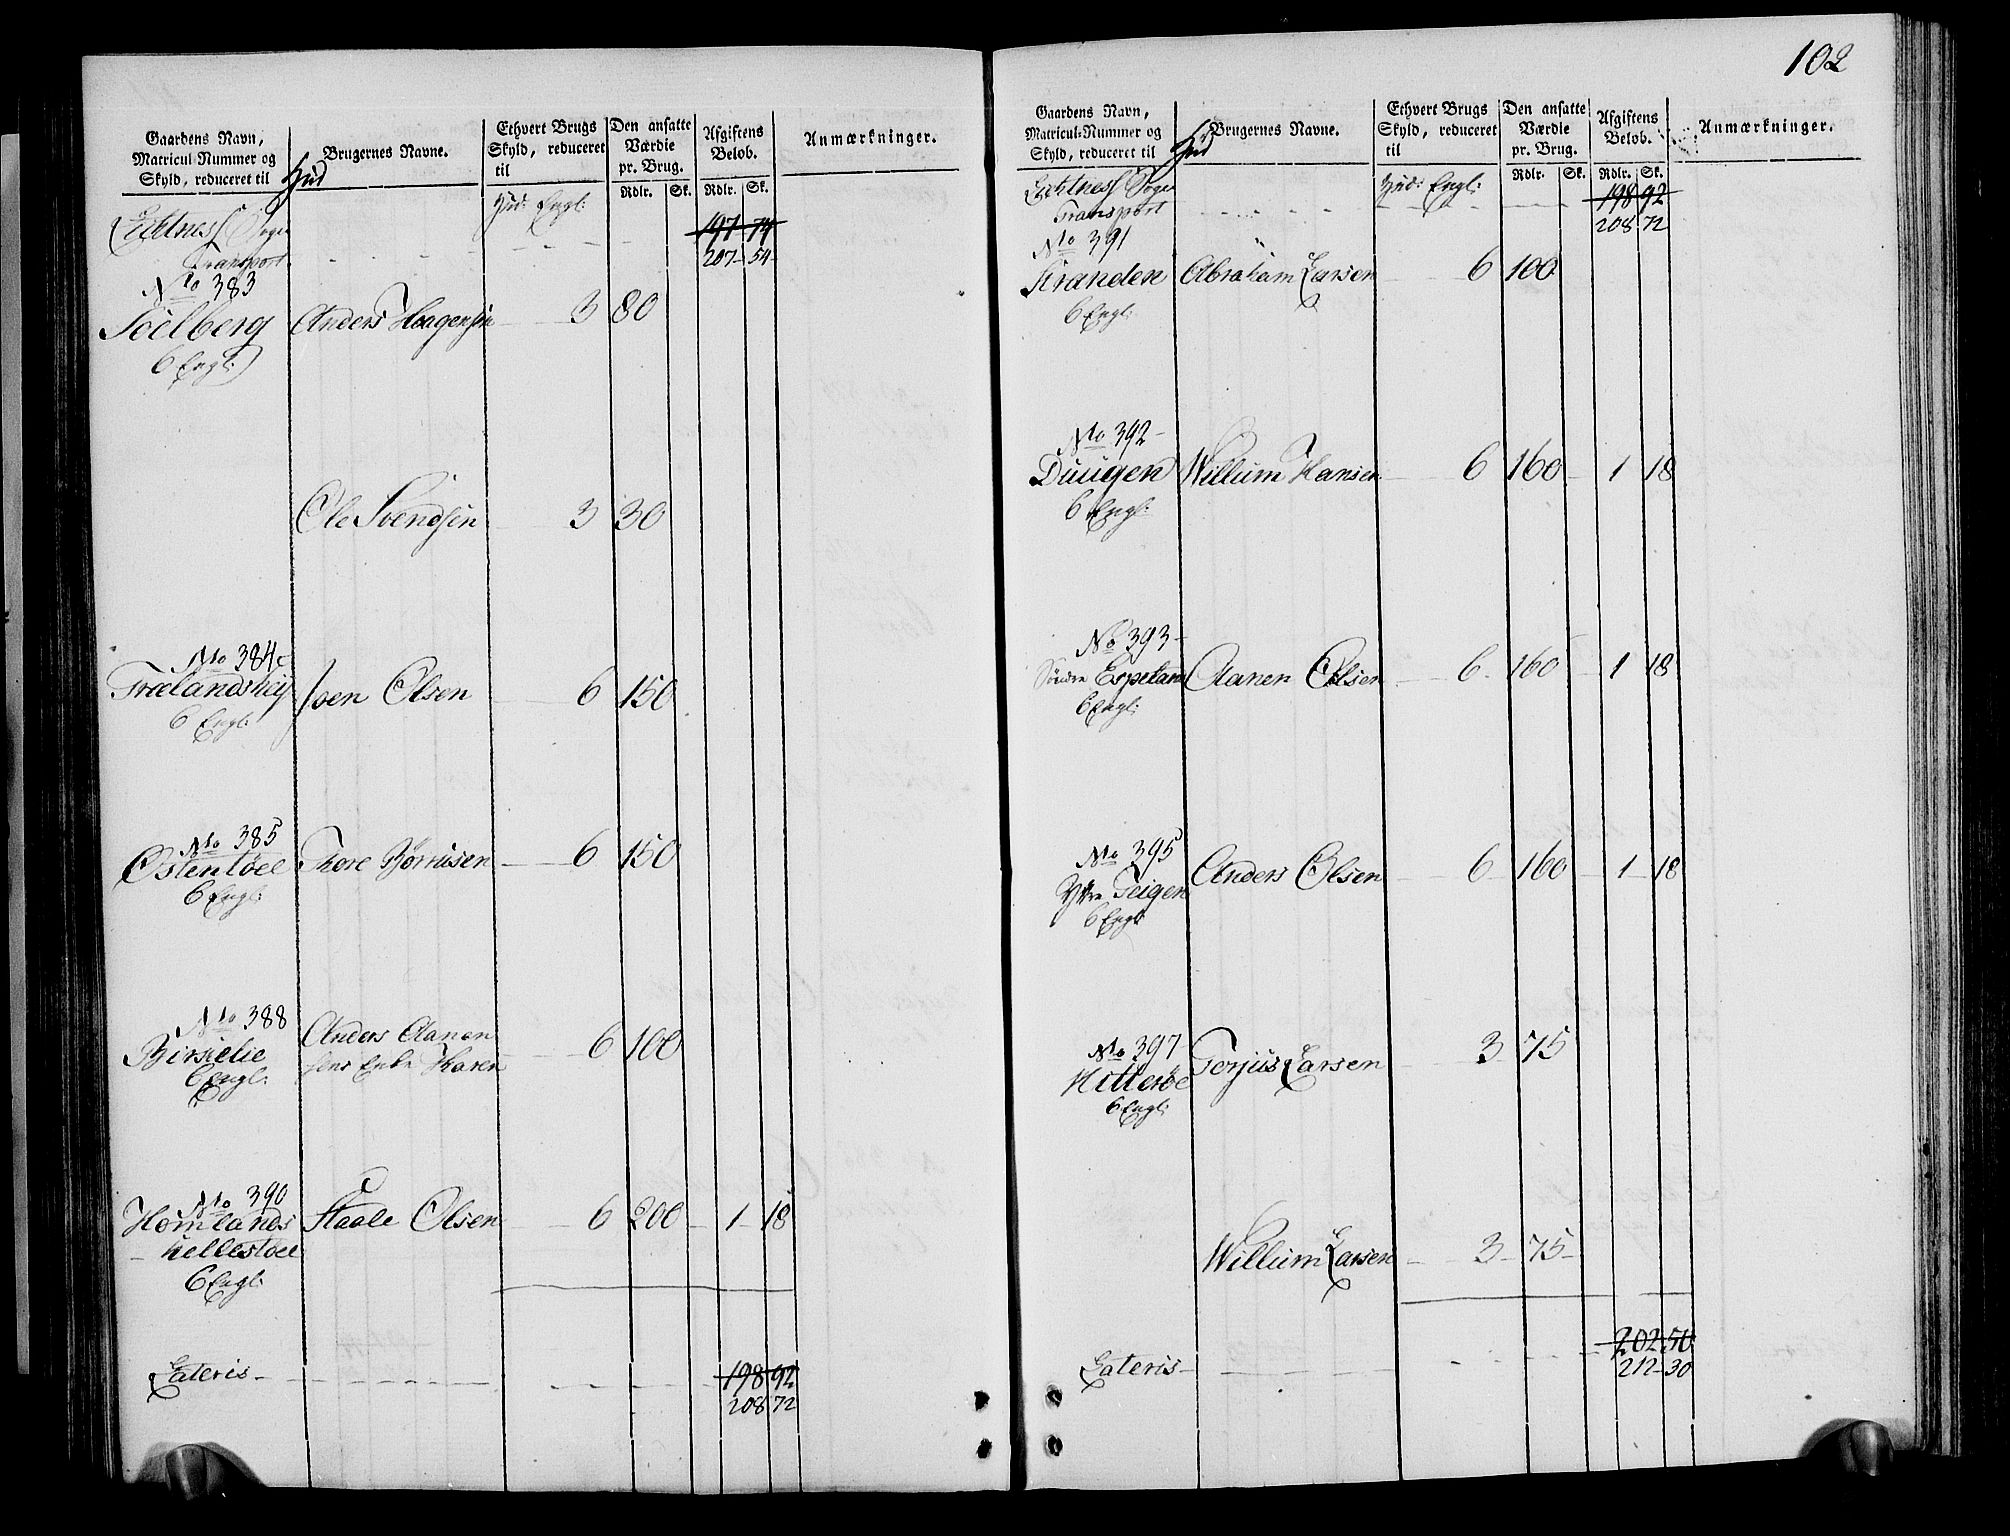 Gaardens Navn,
Matricul-Nummer og
Skyld, reduceret til Hud
Brugernes Navne.
Ethvert Brugs
Skyld, reduceret
til
Den ansatte
Værdie
pr. Brug.
Rdlr. Sk.
Afgiftens
Beløb.
Rdlr. Sk.
Anmærkninger.
Hud: Engl:
Sogn
Transport 197 74
207 54
No 383
Anders Haagensen 3 80
6 Engl:
Ole Svendsen 3 30
No 384
Olsen 6 150
6 Engl:
No 385
Ostentöel Thore 6 150
6 Engl:
No 388
Birkelie Anders Aanen
sens Enke Karen 6 100
6 Engl:
No 390
Homlands Staale Olsen 6 200 1 18
hellestöel
6 Engl:
Lateris 198 92
208 72
102
Gaardens Navn,
Matricul-Nummer og
Skyld, reduceret til Hud
Brugernes Navne.
Ethvert Brugs
Skyld, reduceret
til
Den ansatte
Værdie
pr. Brug.
Rdlr. Sk.
Afgiftens
Beløb.
Rdlr. Sk.
Anmærkninger.
Hud: Engl:
Sogn
Transport 198 92
208 72
No 391
Stranden Abraham Larsen 6 100
6 Engl:
No 392
Duugen Willum Hansen 6 160 1 18
6 Engl:
No 393
Söndre Espeland Aanen Olsen 6 160 1 18
6 Engl:
No 395
Yttre Teigen Anders Olsen 6 160 1 18
6 Engl:
No 397
Hitteröe Torjus Larsen 3 75
6 Engl:
Willum Larsen 3 75
202 50
Lateris 212 30